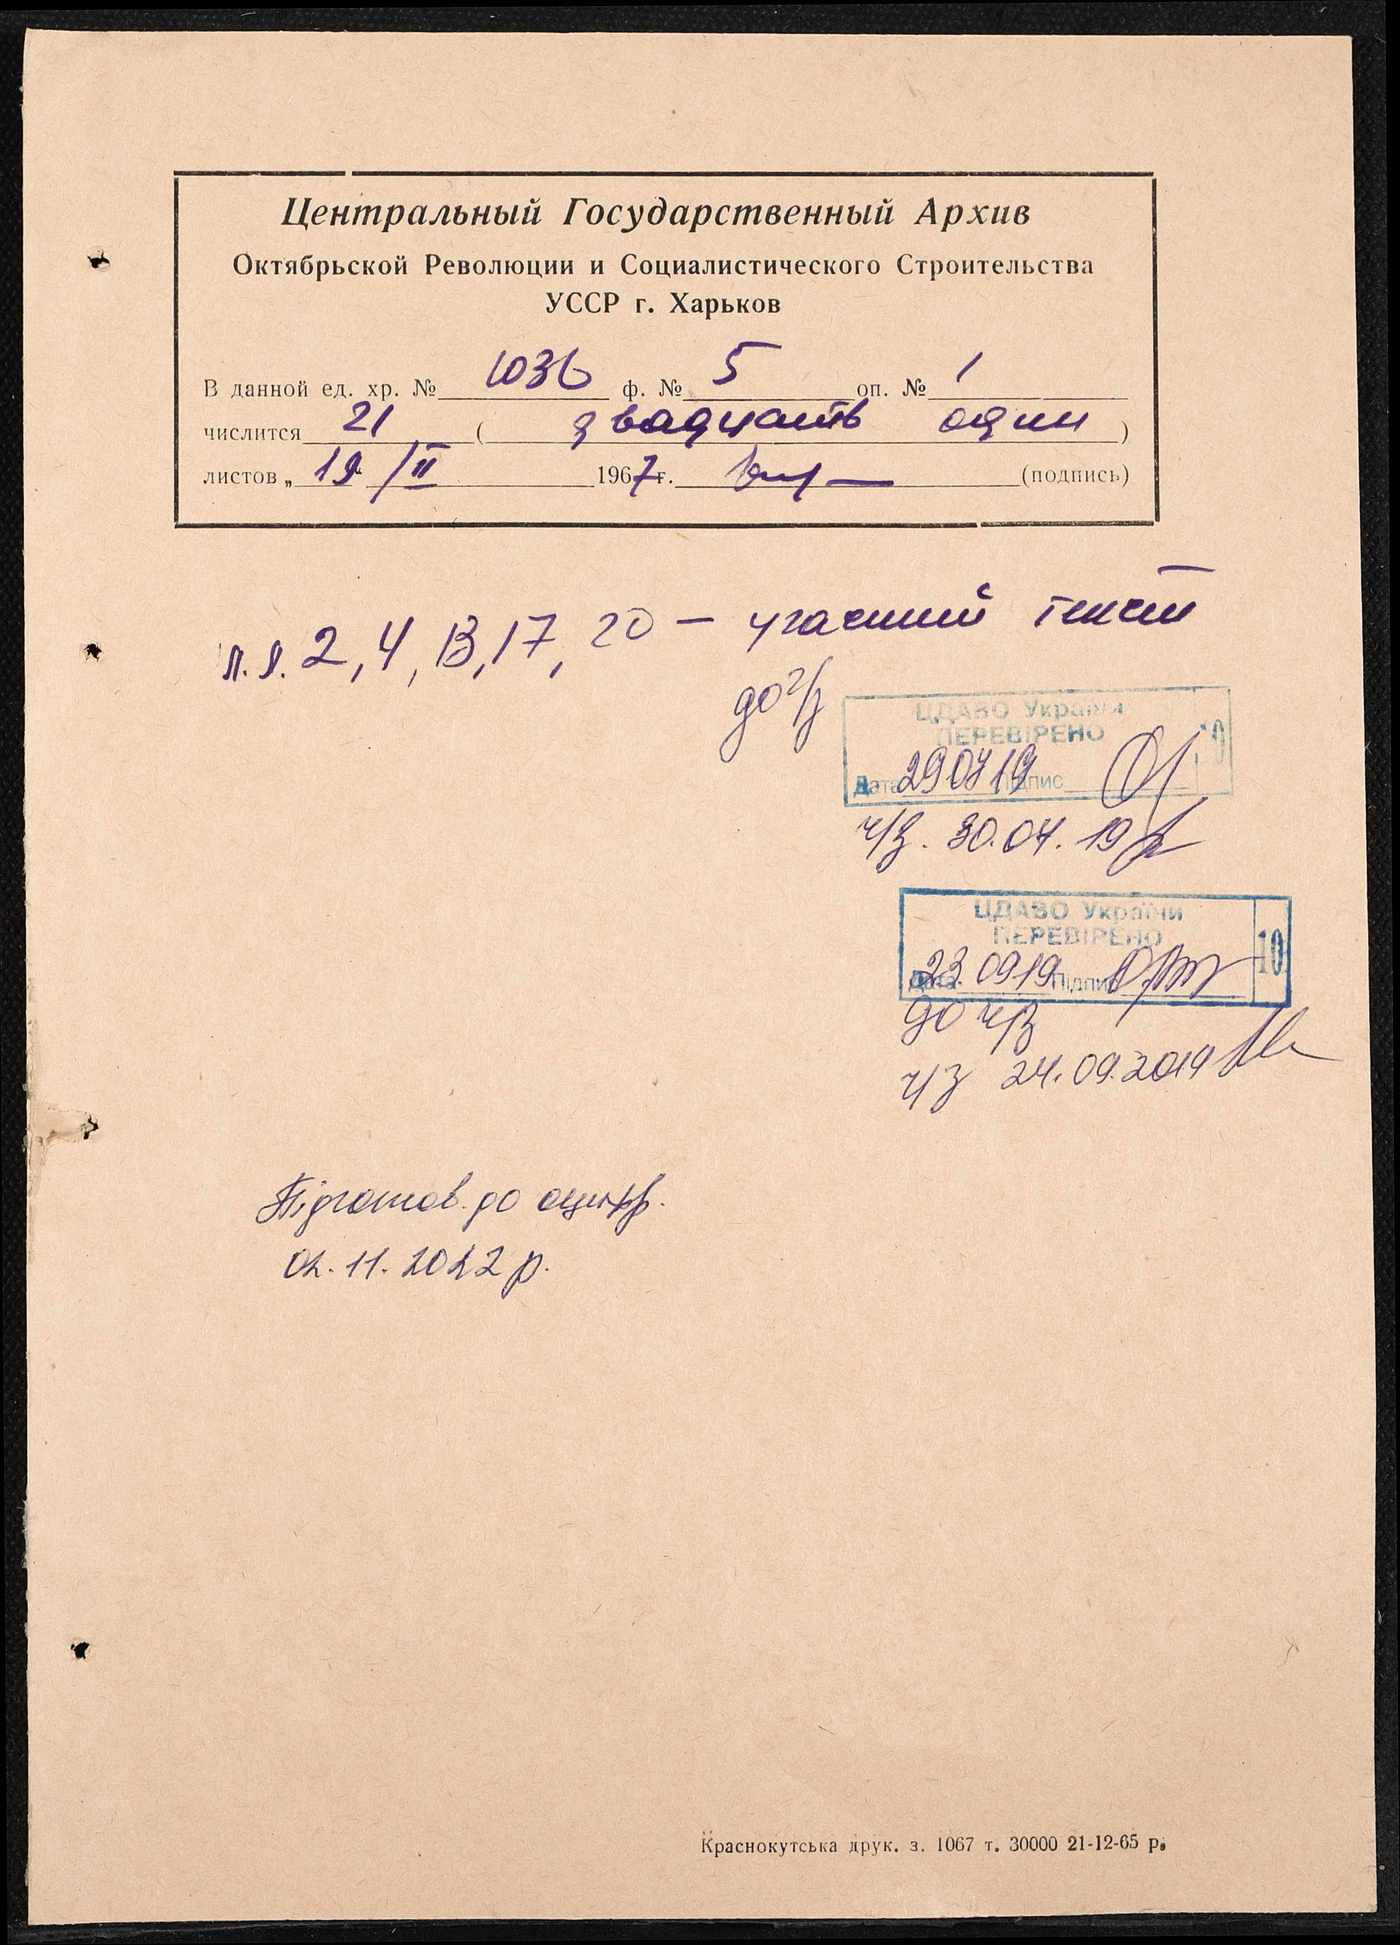 Центральный Государственный Архив
Октябрьской Революции и Социалистического Строительства
УССР г. Харьков
В данной ед. хр. № 1036 ф. № 5 оп. № 1
числится 21 ( двадцать один )
листов „ 19 /II 1967 г. (подпись)
л. л. 2, 4, 13, 17, 20 — угасший текст
до ч/з
ЦДАВО України
ПЕРЕВІРЕНО 10
Дата 290719 Підпис
ч/з. 30.07.19
ЦДАВО України
ПЕРЕВІРЕНО 10
Дата 23.0919 Підпис
до ч/з
ч/з 24.09.2019
Підготов. до оцифр.
02.11.2022 р.
Краснокутська друк. з. 1067 т. 30000 21-12-65 р.